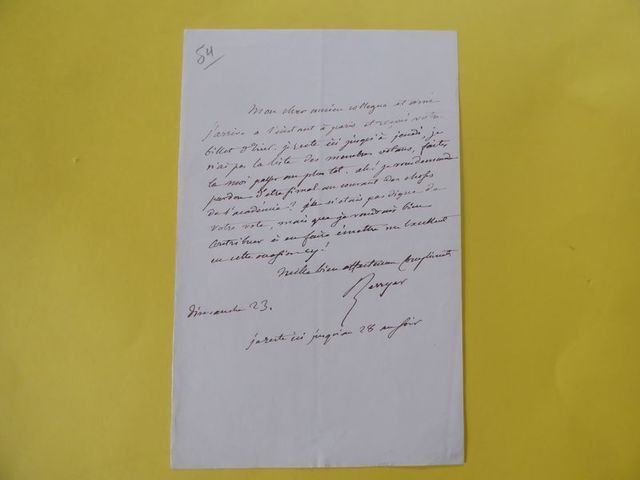 54
Mon cher ancien collegue et ami
j'arrive a l'instant à paris et reçois votre
billet d'hier. je reste ici jusqu'à jeudi, je
n'ai pas la liste des membres votans, faites
la moi passer au plus tot. ah! je vous demande
pardon d'etre si mal au courant des choses
de l'académie! je n'étais pas digne de
votre vote, mais que je voudrais bien
contribuer à en faire émettre un excellent
en cette occasion cy!
mille bien affectueux compliments
Berryer
dimanche 23.
je reste ici jusqu'au 28 au soir